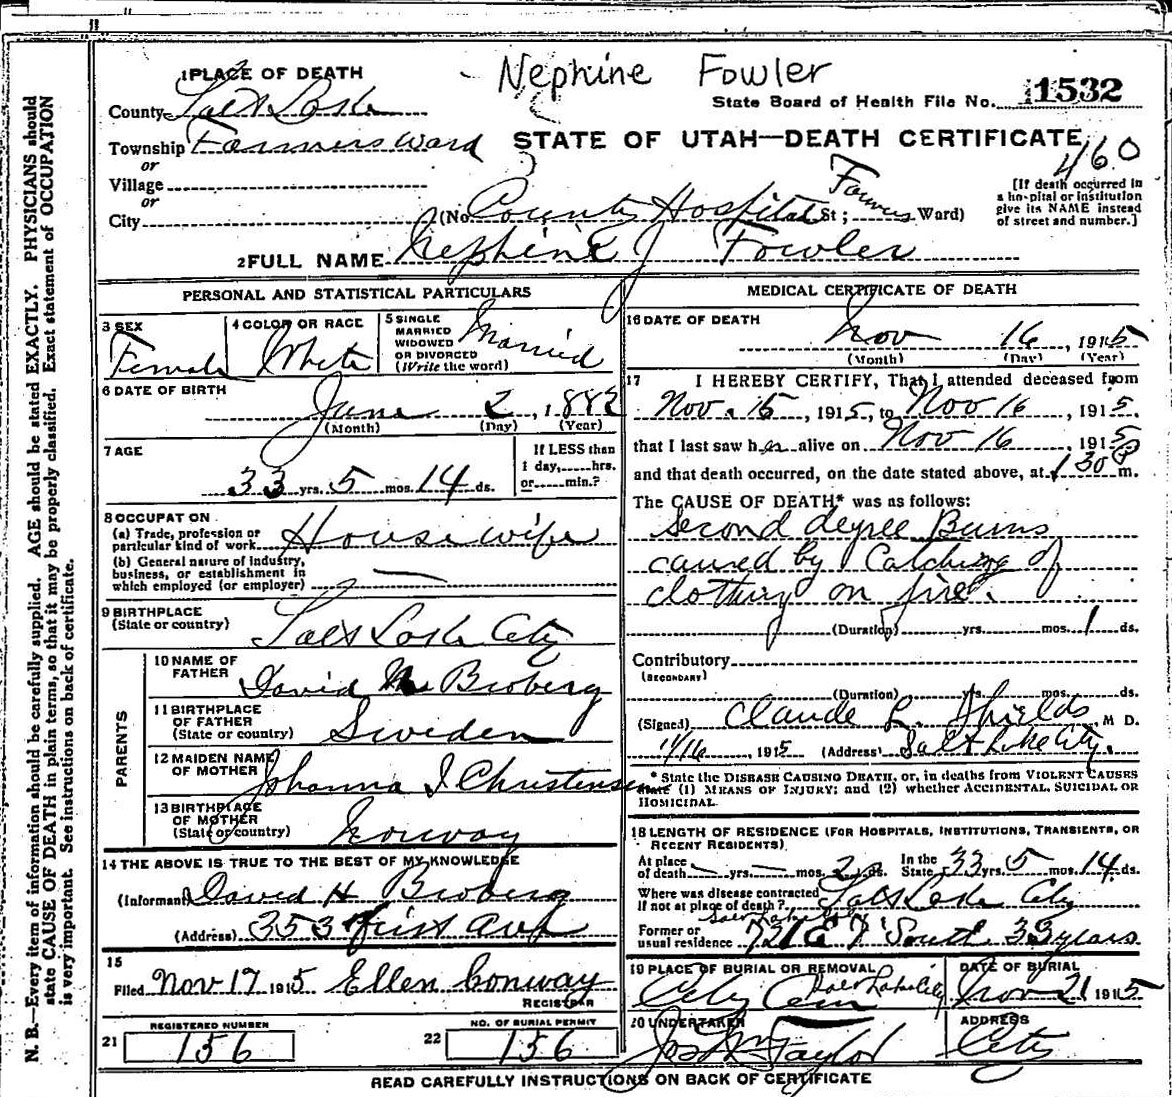 Nephine Fowler
1 PLACE OF DEATH
State Board of Health File No. 1532
County Salt Lake
STATE OF UTAH—DEATH CERTIFICATE
Township Farmers Ward
460
or
Village
or
City
(No. County Hospital St; Farmers Ward)
[If death occurred in a hospital or institution give its NAME instead of street and number.]
2 FULL NAME Nephine J Fowler
PERSONAL AND STATISTICAL PARTICULARS
3 SEX
Female
4 COLOR OR RACE
White
5 SINGLE MARRIED WIDOWED OR DIVORCED (Write the word)
Married
6 DATE OF BIRTH
June 2, 1882
(Month) (Day) (Year)
7 AGE
33 yrs. 5 mos. 14 ds.
If LESS than
1 day,......hrs.
or......min.?
8 OCCUPATION
(a) Trade, profession or
particular kind of work Housewife
(b) General nature of industry,
business, or establishment in
which employed (or employer) —
9 BIRTHPLACE
(State or country) Salt Lake City
PARENTS
10 NAME OF
FATHER David Broberg
11 BIRTHPLACE
OF FATHER
(State or country) Sweden
12 MAIDEN NAME
OF MOTHER Johanna I Christensen
13 BIRTHPLACE
OF MOTHER
(State or country) Norway
14 THE ABOVE IS TRUE TO THE BEST OF MY KNOWLEDGE
(Informant) David H Broberg
(Address) 353 First Ave
15
Filed Nov 17 1915 Ellen Conway
REGISTRAR
21 REGISTERED NUMBER
156
22 NO. OF BURIAL PERMIT
156
MEDICAL CERTIFICATE OF DEATH
16 DATE OF DEATH
Nov 16, 1915
(Month) (Day) (Year)
17 I HEREBY CERTIFY, That I attended deceased from
Nov. 15, 1915, to Nov 16, 1915.
that I last saw her alive on Nov 16, 1915
and that death occurred, on the date stated above, at 1 30 P m.
The CAUSE OF DEATH* was as follows:
Second degree Burns
caused by Catching of
clothing on fire.
(Duration) yrs. mos. 1 ds.
Contributory
(SECONDARY)
(Duration) yrs. mos. ds.
(Signed) Claude L. Shields, M D.
11/16, 1915 (Address) Salt Lake City.
* State the DISEASE CAUSING DEATH, or, in deaths from VIOLENT CAUSES
state (1) MEANS OF INJURY; and (2) whether ACCIDENTAL, SUICIDAL OR
HOMICIDAL.
18 LENGTH OF RESIDENCE (FOR HOSPITALS, INSTITUTIONS, TRANSIENTS, OR
RECENT RESIDENTS)
At place of death — yrs. — mos. 2 ds. In the State 33 yrs. 5 mos. 14 ds.
Where was disease contracted
If not at place of death? Salt Lake City
Salt Lake City
Former or
usual residence 721 E 7 South 33 years
19 PLACE OF BURIAL OR REMOVAL
City Cem Salt Lake City
DATE OF BURIAL
Nov 21 1915
20 UNDERTAKER
Jos Wm Taylor
ADDRESS
City
READ CAREFULLY INSTRUCTIONS ON BACK OF CERTIFICATE
N. B.—Every item of information should be carefully supplied. AGE should be stated EXACTLY. PHYSICIANS should
state CAUSE OF DEATH in plain terms, so that it may be properly classified. Exact statement of OCCUPATION
is very important. See instructions on back of certificate.